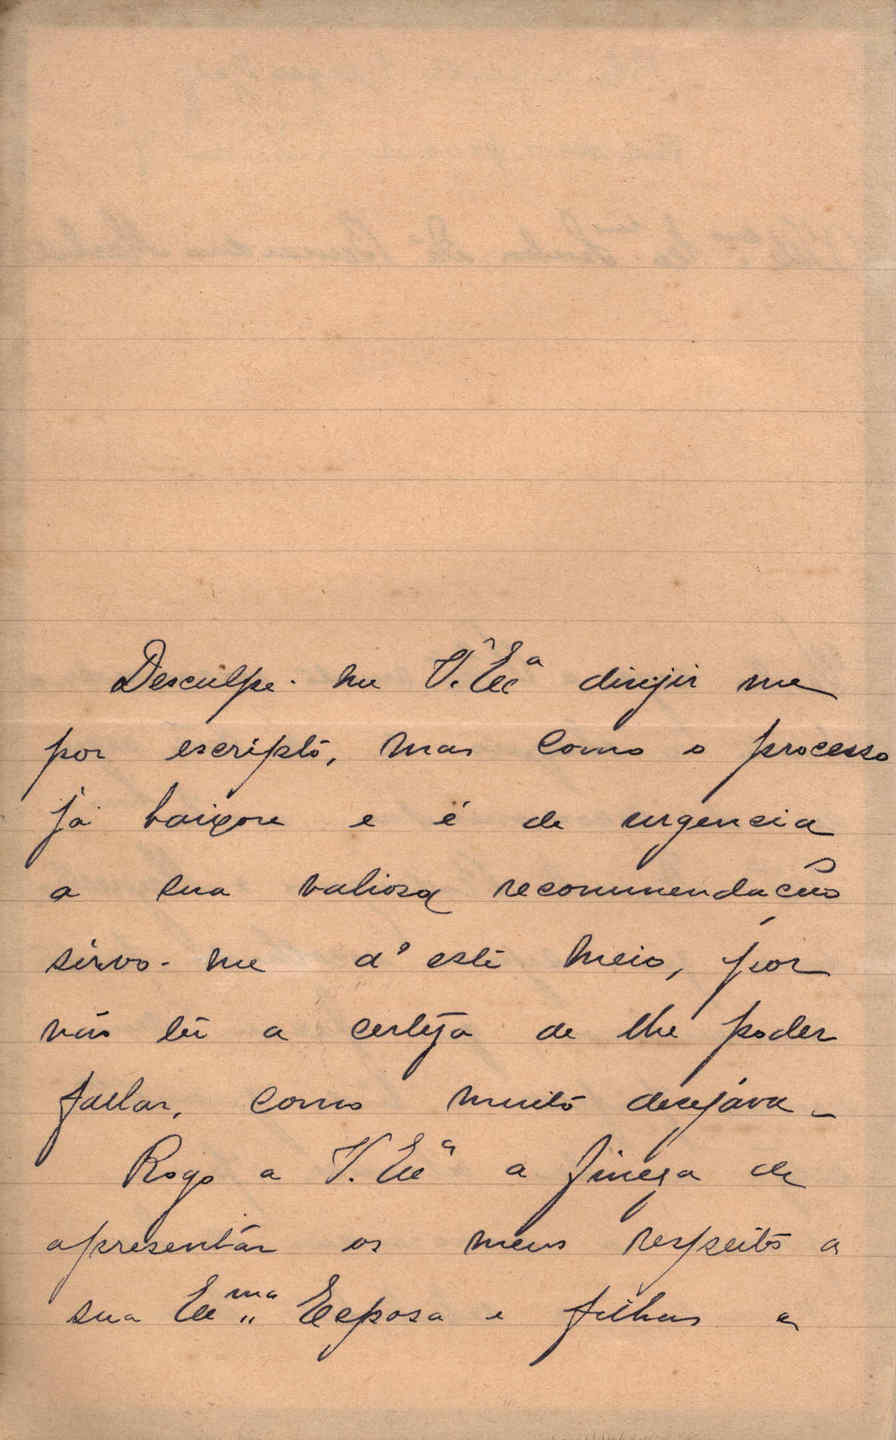 Desculpe-me V. Exª dirijir me
por escripto, mas como o processo
já baixou e é de urgencia
a sua valiosa recommendação
sirvo-me d'este meio, por
não ter a certeza de lhe poder
fallar, como muito desejáva_
Rogo a V. Exª a fineza de
apresentár os meus respeitos a
sua Exma Esposa e filhas e